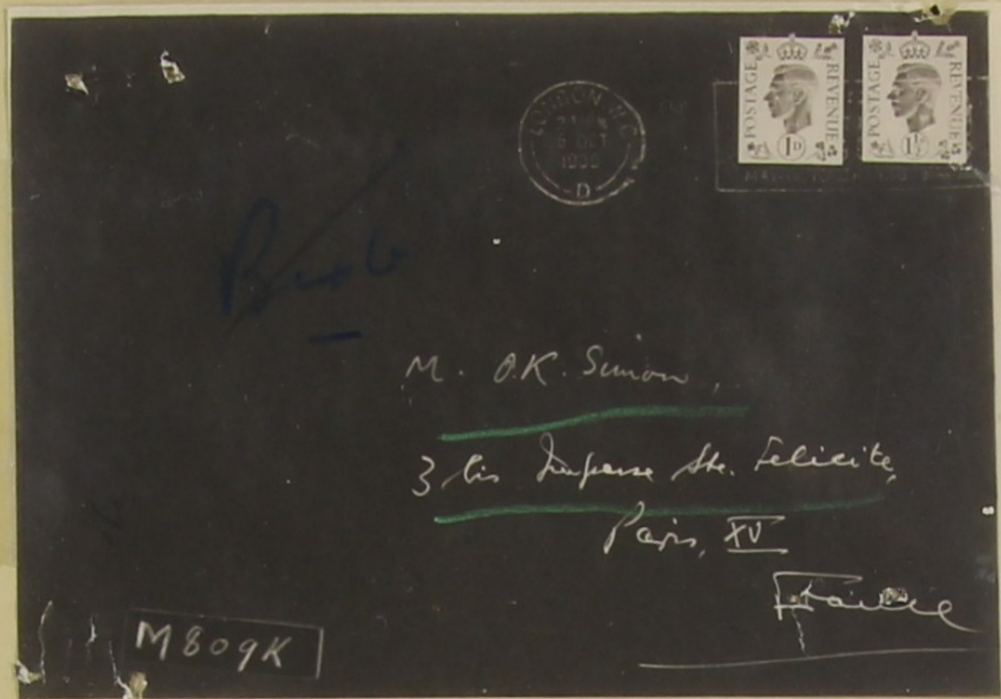 POSTAGE REVENUE 1D
POSTAGE REVENUE 1½
LONDON W.C.
OCT
D
M. O.K. Simon,
3 bis Impasse Ste. Felicite,
Paris, XV
France
M809K